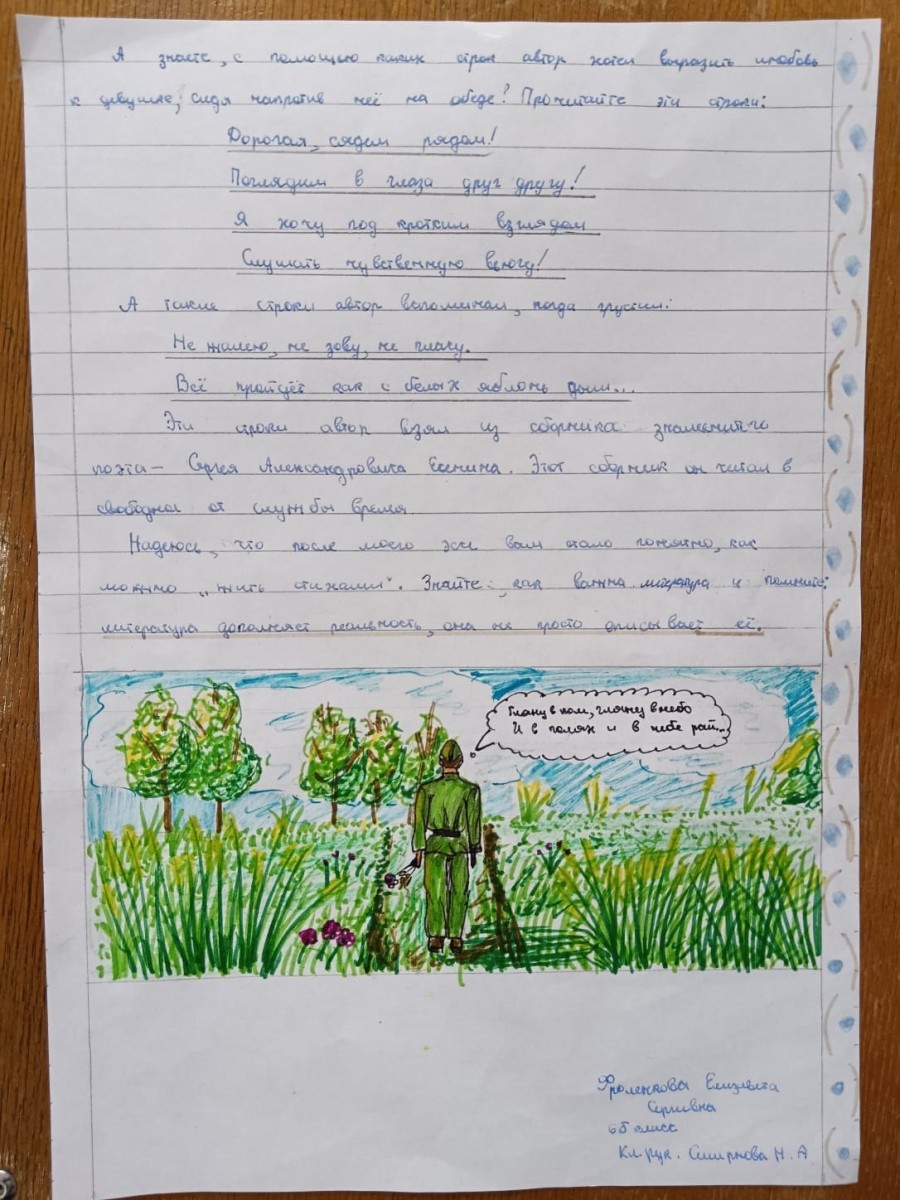 А знаете, с помощью каких строк автор хотел выразить любовь
к девушке, сидя напротив неё на обеде? Прочитайте эти строки:
Дорогая, сядем рядом!
Поглядим в глаза друг другу!
Я хочу под кротким взглядом
Слушать чувственную вьюгу!
А такие строки автор вспоминал, когда грустил:
Не жалею, не зову, не плачу.
Всё пройдёт как с белых яблонь дым...
Эти строки автор взял из сборника знаменитого
поэта – Сергея Александровича Есенина. Этот сборник он читал в
свободное от службы время.
Надеюсь, что после моего эссе вам стало понятно, как
можно „жить стихами". Знайте, как важна литература и помните:
литература дополняет реальность, она не просто описывает её.
Гляну в поле, гляну в небо
И в полях и в небе рай...
Фроленкова Елизавета
Сергеевна
6Б класс
Кл. рук. Смирнова Н. А